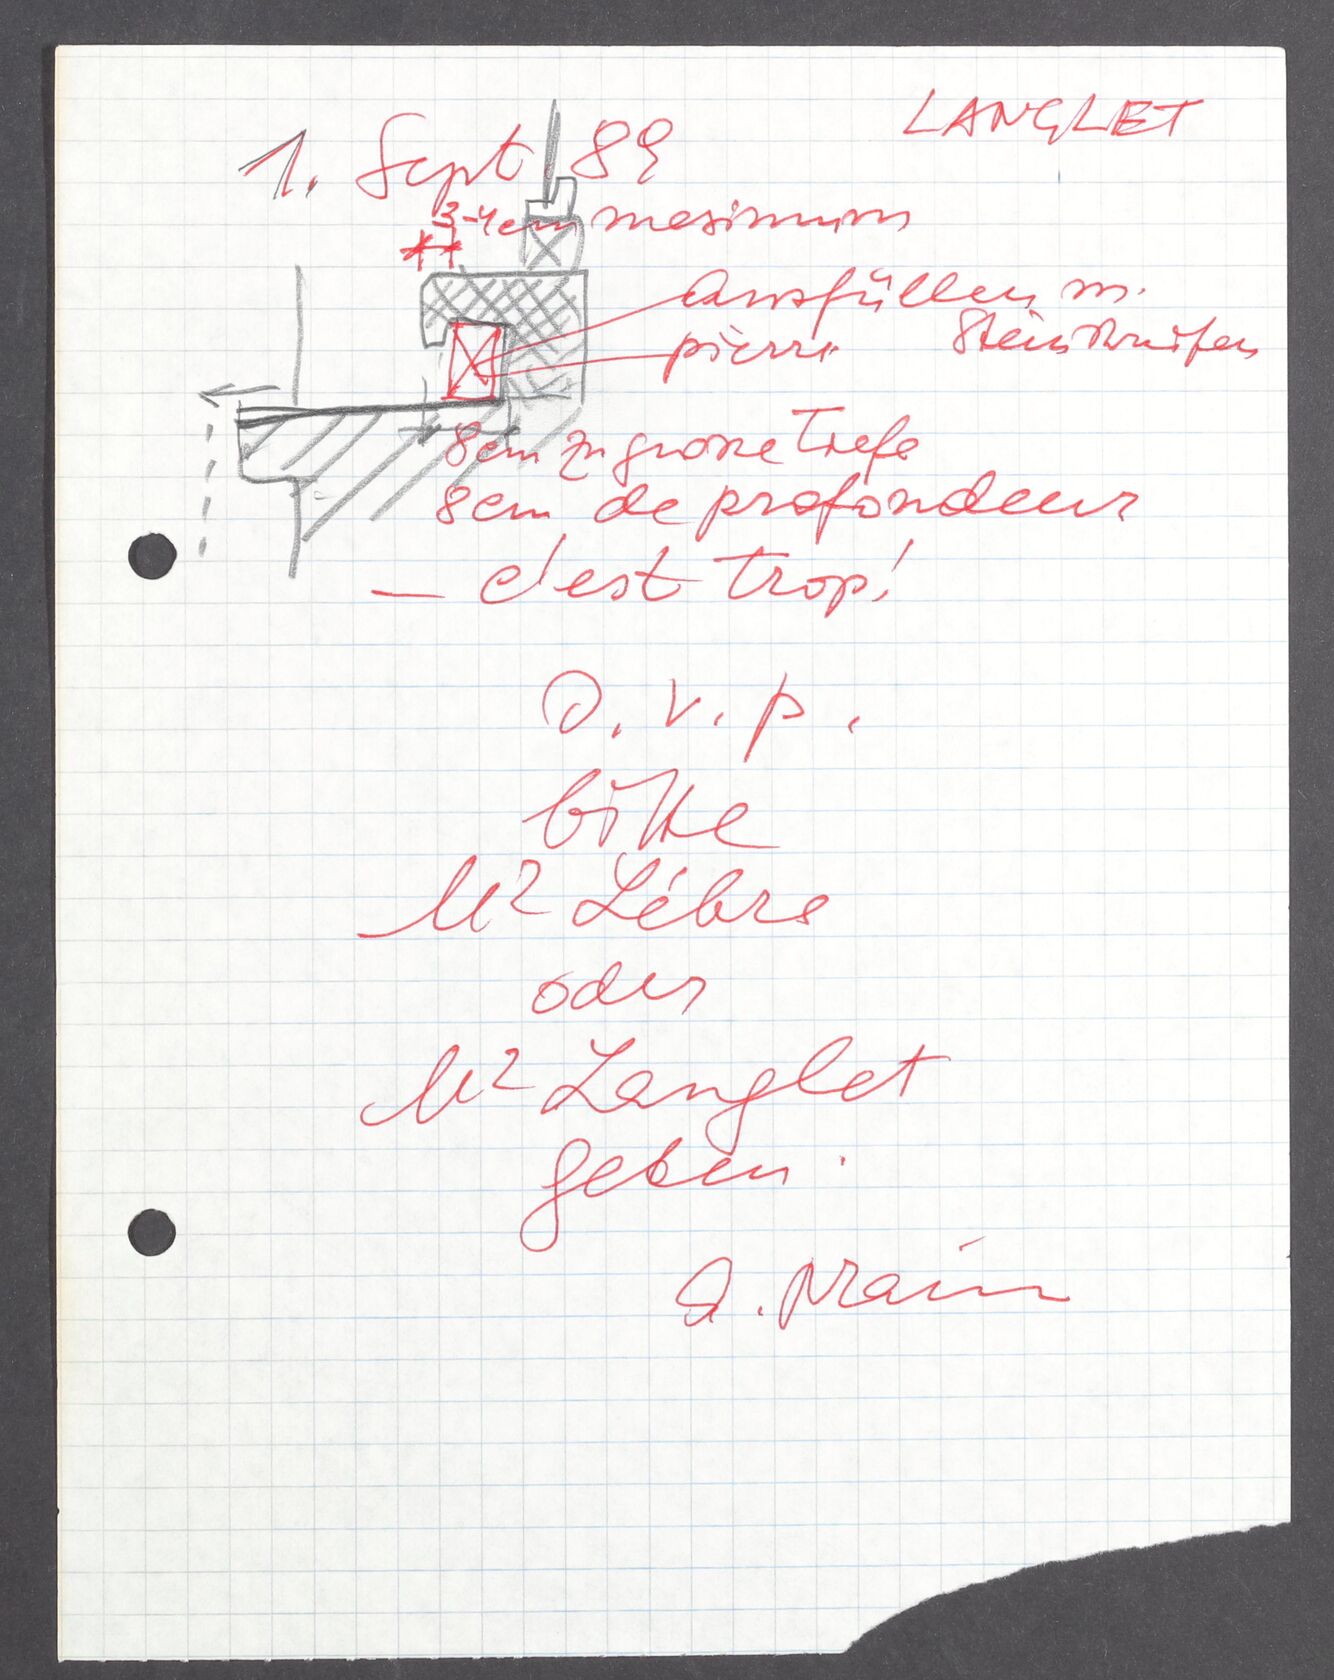 LANGLET
1. Sept 89
3-4cm maximum
Ausfüllen m.
Steinstreifen
pierre
8cm zu grosse Tiefe
8cm de profondeur
— c'est trop!
D. v. p.
bitte
Mr Lébre
oder
Mr Langlet
geben.